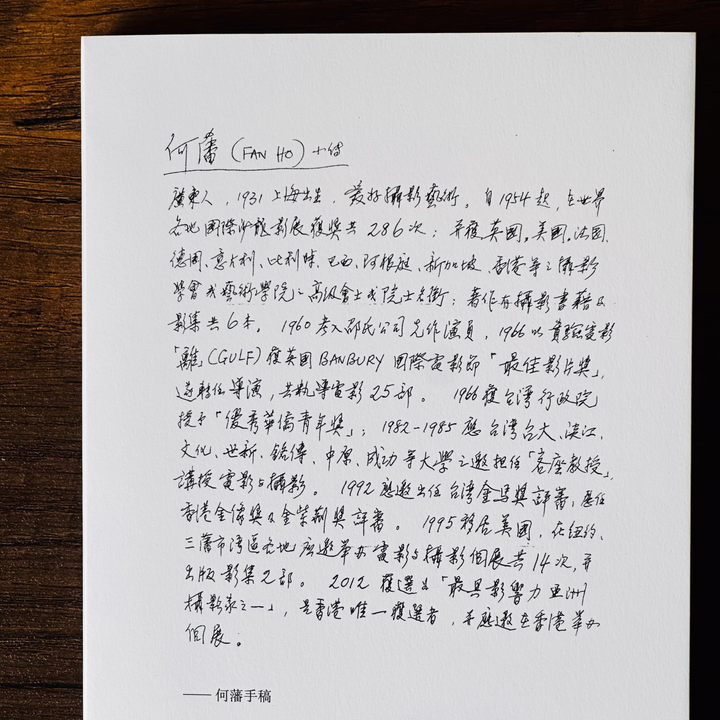 何藩 (FAN HO) 小傳
廣東人，1931上海出生，愛好攝影藝術。自1954起，在世界
各地國際沙龍影展獲獎共286次；并獲英國、美國、法國、
德國、意大利、比利時、巴西、阿根廷、新加坡、香港等之攝影
學會或藝術學院之高級會士或院士名銜；著作有攝影書籍及
影集共6本。1960考入邵氏公司充作演員，1966以實驗電影
「離」(GULF)獲英國BANBURY國際電影節「最佳影片獎」，
遂轉任導演，共執導電影25部。1966獲台灣行政院
授予「優秀華僑青年獎」；1982-1985應台灣台大、淡江、
文化、世新、銘傳、中原、成功等大學之邀担任「客座教授」，
講授電影与攝影。1992應邀出任台灣金馬獎評審，歷任
香港金像獎及金紫荆獎評審。1995移居美國，在紐約、
三藩市灣區各地應邀舉办電影与攝影個展共14次，并
出版影集2部。2012獲選為「最具影響力亞洲
攝影家之一」，是香港唯一獲選者，并應邀至香港舉办
個展。
——何藩手稿